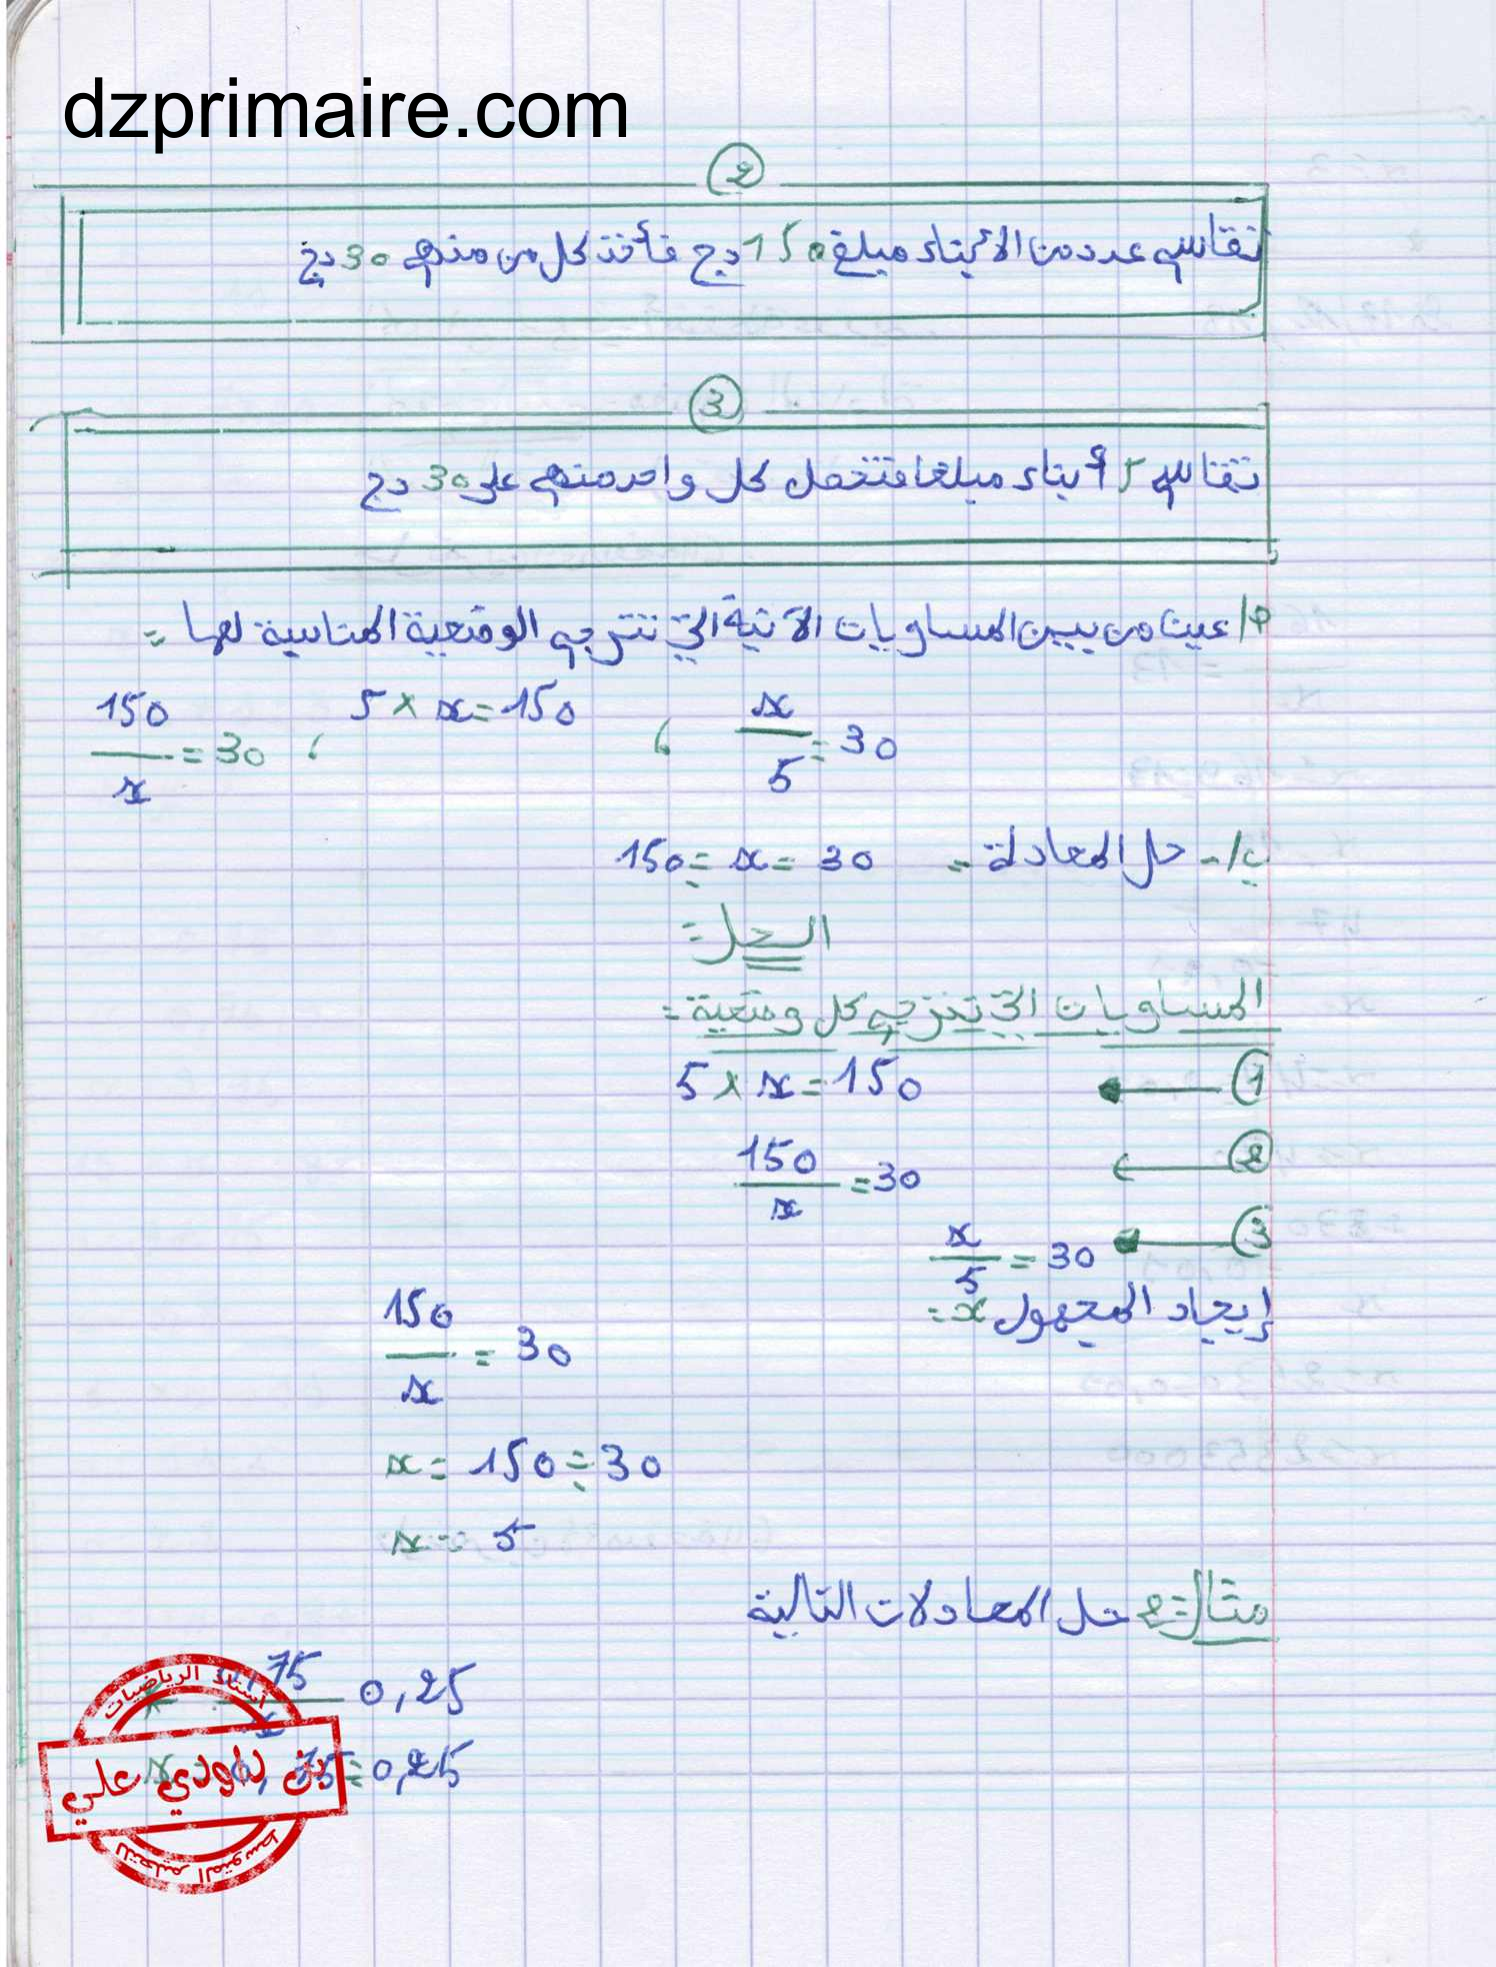 dzprimaire.com
2
تقاسم عدد من الأبناء مبلغ 150 دج فأخذ كل من منهم 30 دج
3
تقاسم 5 أبناء مبلغا فتحصل كل واحد منهم على 30 دج
أ/ عين من بين المساويات الآتية التي تترجم الوضعية المناسبة لها =
150/x = 30 ، 5 × x = 150 ، x/5 = 30
ب/- حل المعادلة = 150 ÷ x = 30
الحل =
المساويات التي تترجم كل وضعية =
1 ← 5 × x = 150
2 ← 150/x = 30
3 ← x/5 = 30
إيجاد المجهول x =
150/x = 30
x = 150 ÷ 30
x = 5
مثال 2 = حل المعادلات التالية
75 0,25
x 75 ÷ 0,25
أستاذ الرياضيات
بن داودي علي
للتعليم المتوسط